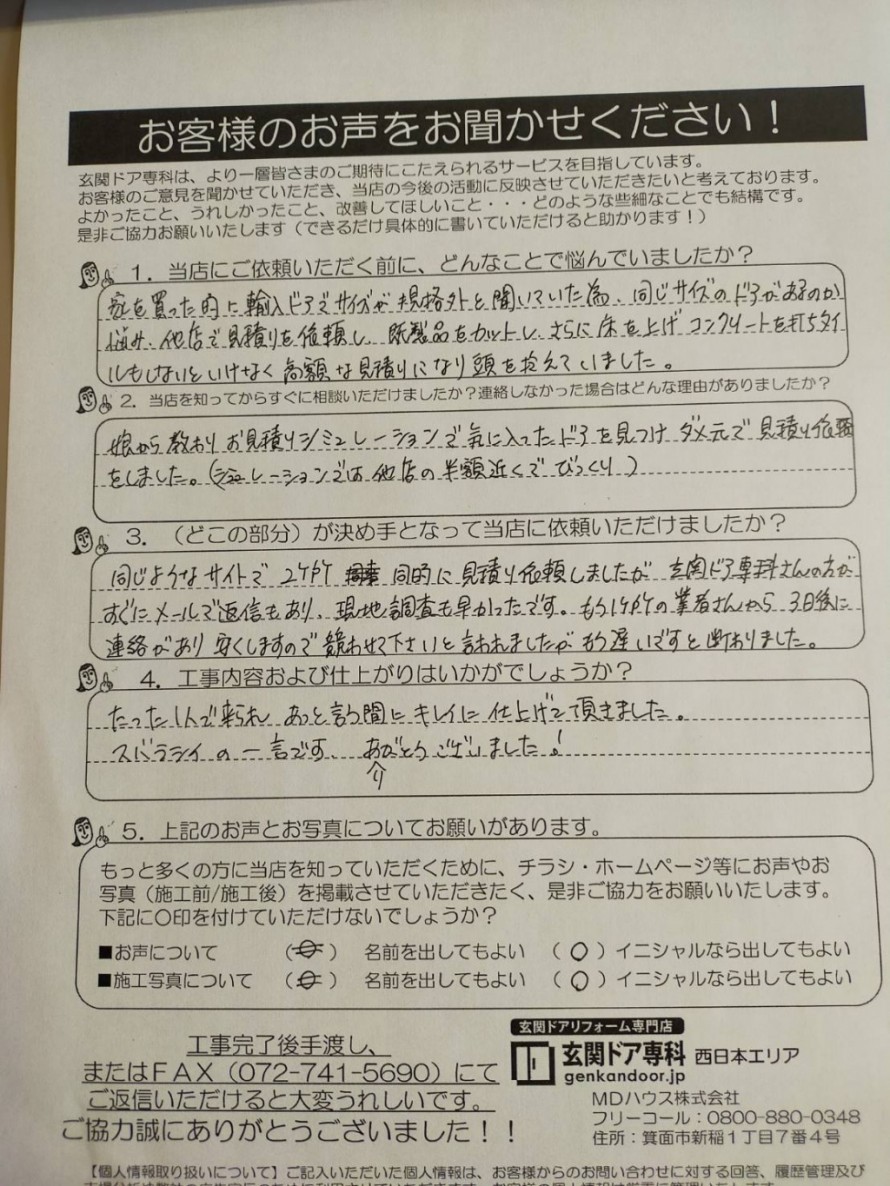 お客様のお声をお聞かせください！
玄関ドア専科は、より一層皆さまのご期待にこたえられるサービスを目指しています。
お客様のご意見を聞かせていただき、当店の今後の活動に反映させていただきたいと考えております。
よかったこと、うれしかったこと、改善してほしいこと・・・どのような些細なことでも結構です。
是非ご協力お願いいたします（できるだけ具体的に書いていただけると助かります！）
1．当店にご依頼いただく前に、どんなことで悩んでいましたか？
家を買った時に輸入ドアでサイズが規格外と聞いていた為、同じサイズのドアがあるのか
悩み、他店で見積りを依頼し、既製品をカットし、さらに床を上げコンクリートを打ちタイ
ルもしないといけなく高額な見積りになり頭を抱えていました。
2．当店を知ってからすぐに相談いただけましたか？連絡しなかった場合はどんな理由がありましたか？
娘から教わりお見積りシミュレーションで気に入ったドアを見つけダメ元で見積り依頼
をしました。（シミュレーションでは他店の半額近くでびっくり）
3．（どこの部分）が決め手となって当店に依頼いただけましたか？
同じようなサイトで2ケ所同時に見積り依頼しましたが玄関ドア専科さんの方が
すぐにメールで返信もあり、現地調査も早かったです。もう1ケ所の業者さんから3日後に
連絡があり安くしますので競わせて下さいと言われましたがもう遅いですと断わりました。
4．工事内容および仕上がりはいかがでしょうか？
たった1人で来られあっと言う間にキレイに仕上げて頂きました。
スバラシイの一言です、ありがとうございました！
5．上記のお声とお写真についてお願いがあります。
もっと多くの方に当店を知っていただくために、チラシ・ホームページ等にお声やお
写真（施工前/施工後）を掲載させていただきたく、是非ご協力をお願いいたします。
下記に○印を付けていただけないでしょうか？
■お声について （○） 名前を出してもよい （○）イニシャルなら出してもよい
■施工写真について （○） 名前を出してもよい （○）イニシャルなら出してもよい
工事完了後手渡し、
またはＦＡＸ（072-741-5690）にて
ご返信いただけると大変うれしいです。
ご協力誠にありがとうございました！！
玄関ドアリフォーム専門店
玄関ドア専科 西日本エリア
genkandoor.jp
MDハウス株式会社
フリーコール：0800-880-0348
住所：箕面市新稲1丁目7番4号
【個人情報取り扱いについて】ご記入いただいた個人情報は、お客様からのお問い合わせに対する回答、履歴管理及び